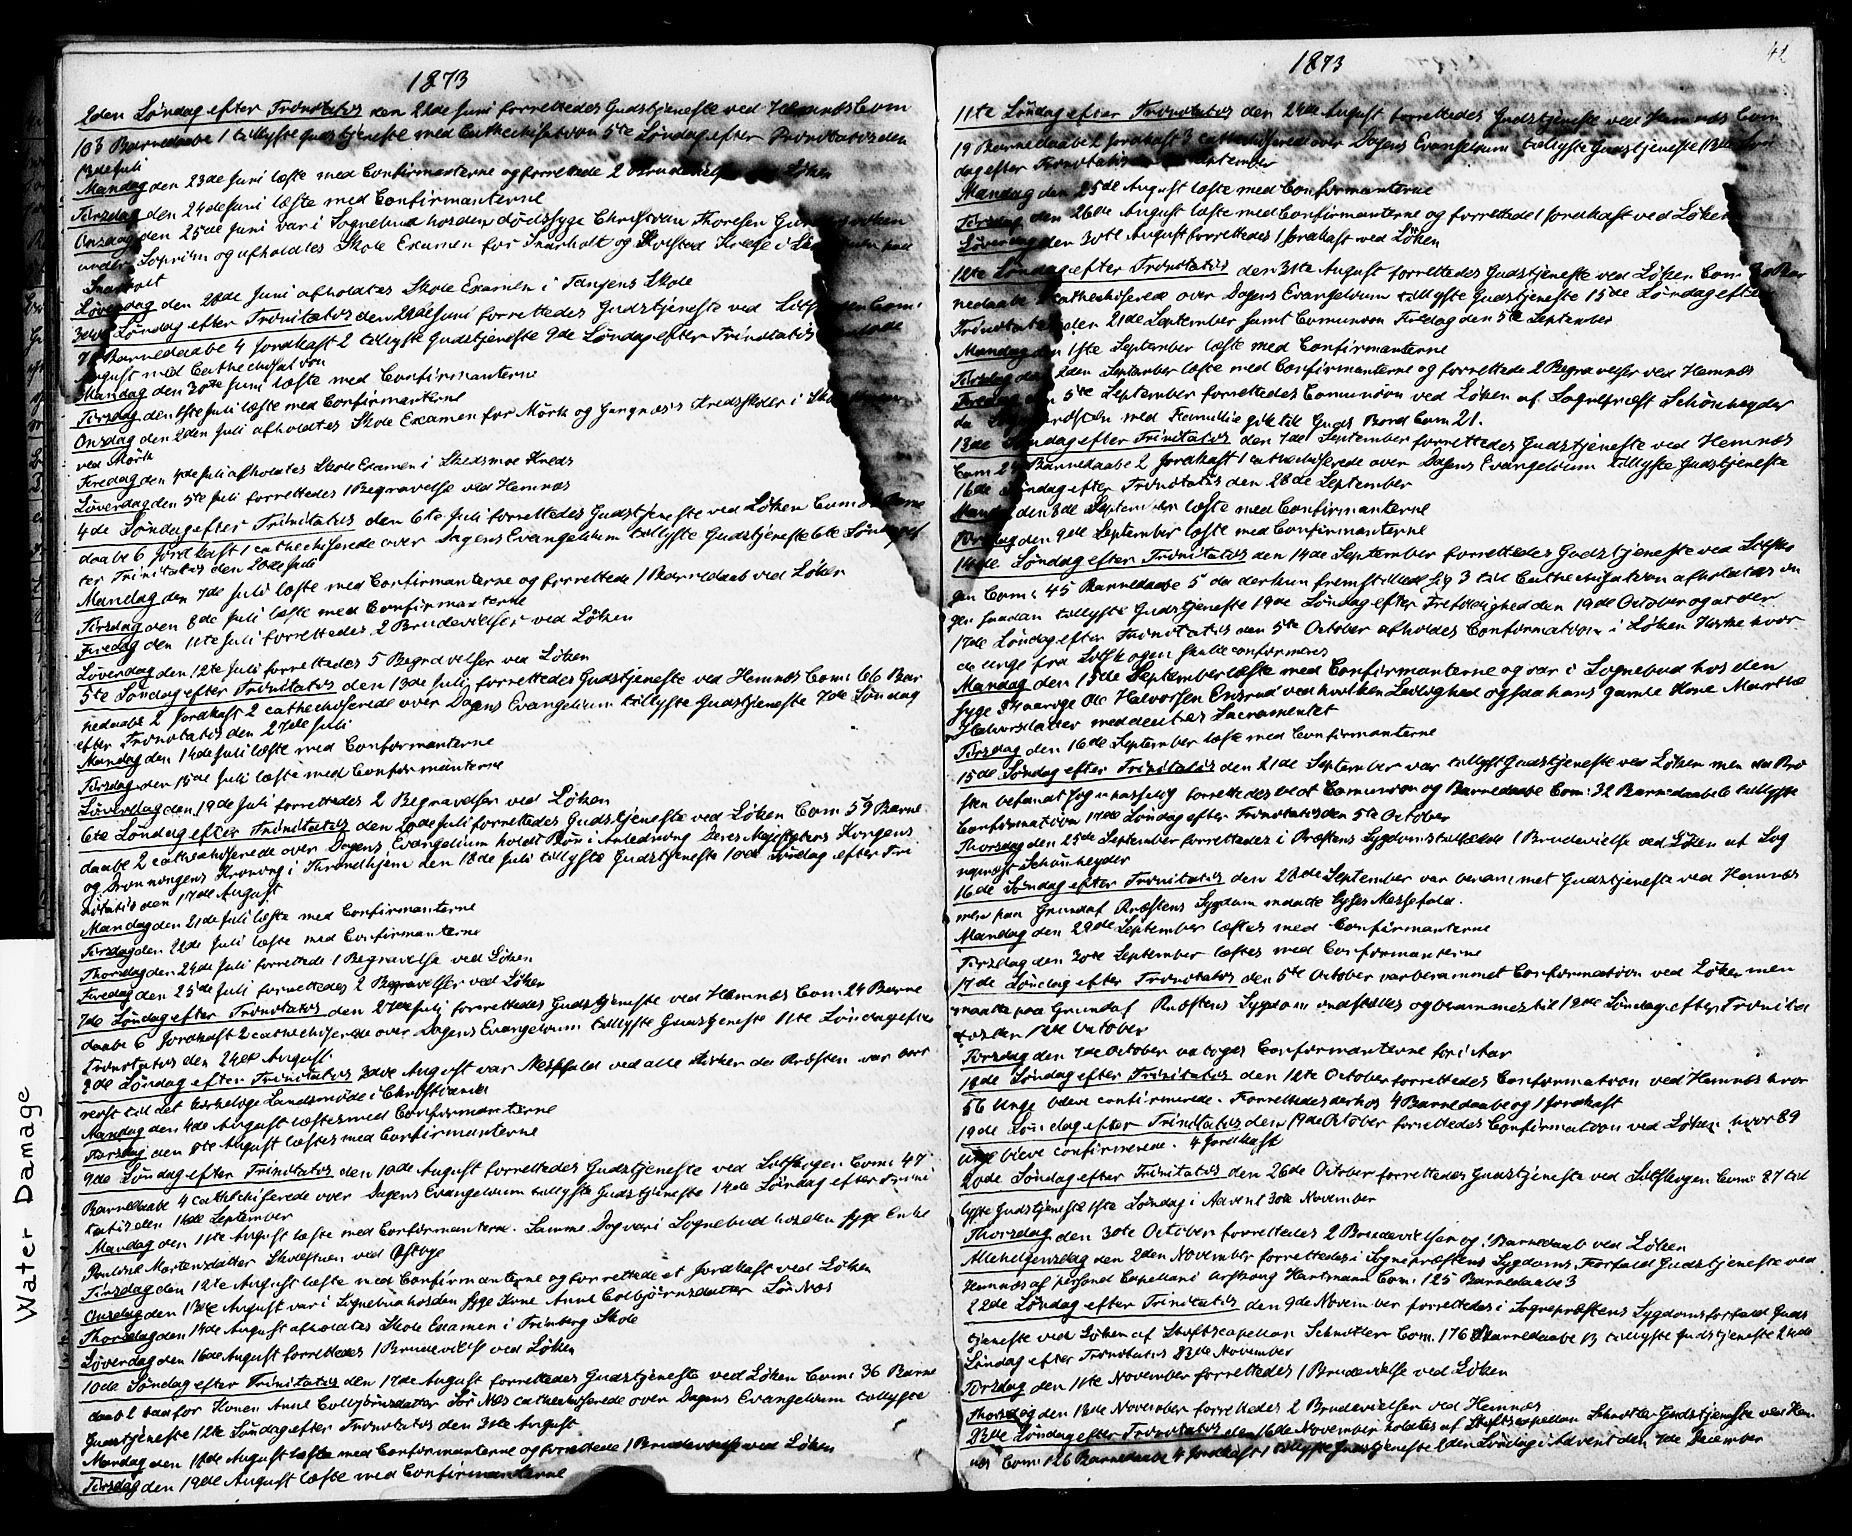 1873
2den Søndag efter Trinitatis den 22de Juni forrettedes Gudstjeneste ved Hemnæs Com
103 Barnedaabe 1 tillyste Gudstjeneste med Cathechisation 5te Søndag efter Trinitatis den
13de Juli
Mandag den 23de Juni læste med Confirmanterne og forrettede 2 Brudevielser Løken
Tirsdag den 24de Juni læste med Confirmanterne
Onsdag den 25de Juni var i Sognebud hos den dødssyge Christian Thoresen
under Soprim og afholdtes Skole Examen for Snarholt og Kolsted Kredse i
Snarholt
Løverdag den 28de Juni afholdtes Skole Examen i Tangens Skole
3die Søndag efter Trinitatis den 29de Juni forrettedes Gudstjeneste ved Com:
71 Barnedaabe 4 Jordkast 2 tillyste Gudstjeneste 9de Søndag efter Trinitatis
August med Cathechisation
Mandag den 30te Juni læste med Confirmanterne
Tirsdag den 1ste Juli læste med Confirmanterne
Onsdag den 2den Juli afholdtes Skole Examen for Mørk og Gangnæs's Kredsskoler i
ved Mørk
Fredag den 4de Juli afholdtes Skole Examen i Skedsmoe Kreds
Løverdag den 5te Juli forrettedes 1 Begravelse ved Hemnæs
4de Søndag efter Trinitatis den 6te Juli forrettedes Gudstjeneste ved Løken Com: Barne
daabe 6 Jordkast 1 cathechiserede over Dagens Evangelium tillyste Gudstjeneste 6te Søndag ef
ter Trinitatis den 20de Juli
Mandag den 7de Juli læste med Confirmanterne og forrettede 1 Barnedaab ved Løken
Tirsdag den 8de Juli læste med Confirmanterne
Fredag den 11te Juli forrettedes 2 Brudevielser ved Løken
Løverdag den 12te Juli forrettedes 5 Begravelser ved Løken
5te Søndag efter Trinitatis den 13de Juli forrettedes Gudstjeneste ved Hemnæs Com: 66 Bar
nedaabe 2 Jordkast 2 cathechiserede over Dagens Evangelium tillyste Gudstjeneste 7de Søndag
efter Trinitatis den 27de Juli
Mandag den 14de Juli læste med Confirmanterne
Tirsdag den 15de Juli læste med Confirmanterne
Løverdag den 19de Juli forrettedes 2 Begravelser ved Løken
6te Søndag efter Trinitatis den 20de Juli forrettedes Gudstjeneste ved Løken Com: 59 Barne
daabe 2 cathechiserede over Dagens Evangelium holdt Bøn i Anledning Deres Majestæters Kongens
og Dronningens Kroning i Throndhjem den 18de Juli tillyste Gudstjeneste 10de Søndag efter Tri
nitatis den 17de August
Mandag den 21de Juli læste med Confirmanterne
Tirsdag den 22de Juli læste med Confirmanterne
Thorsdag den 24de Juli forrettede 1 Begravelse ved Løken
Fredag den 25de Juli forrettedes 2 Begravelser ved Løken
7de Søndag efter Trinitatis den 27de Juli forrettedes Gudstjeneste ved Hemnæs Com: 24 Barne
daabe 6 Jordkast 2 cathechiserede over Dagens Evangelium tillyste Gudstjeneste 11te Søndag efter
Trinitatis den 24de August
8de Søndag efter Trinitatis 3die August var Messefald ved alle Kirker da Præsten var bort
reist til det kirkelige Landsmøde i Christiania
Mandag den 4de August læstes med Confirmanterne
Tirsdag den 5te August læstes med Confirmanterne
9de Søndag efter Trinitatis den 10de August forrettedes Gudstjeneste ved Setskogen Com: 47
Barnedaabe 4 cathechiserede over Dagens Evangelium tillyste Gudstjeneste 14de Søndag efter Trini
tatis den 14de September
Mandag den 11te August læste med Confirmanterne. Samme Dag var i Sognebud hos den syge Enke
Pauline Mortensdatter Skolestuen ved
Tirsdag den 12te August læste med Confirmanterne og forrettede et Jordkast ved Løken
Onsdag den 13de August var i Sognebud hos den syge Kone Anne Colbjørnsdatter Sør Næs
Thorsdag den 14de August afholdtes Skole Examen i Frimberg Skole
Løverdag den 16de August forrettedes 1 Brudevielse ved Løken
10de Søndag efter Trinitatis den 17de August forrettedes Gudstjeneste ved Løken Com: 36 Barne
daab 2 bad for Konen Anne Colbjørnsdatter Sør Næs cathechiserede over Dagens Evangelium tillyste
Gudstjeneste 12te Søndag efter Trinitatis den 31te August
Mandag den 18de August læste med Confirmanterne og forrettede 1 Brudevielse ved Løken
Tirsdag den 19de August læste med Confirmanterne
1873
41
11te Søndag efter Trinitatis den 24de August forrettedes Gudstjeneste ved Hemnæs Com:
19 Barnedaabe 2 Jordkast 3 cathechiserede over Dagens Evangelium tillyste Gudstjeneste 13de Søn
dag efter Trinitatis September
Mandag den 25de August læste med Confirmanterne
Tirsdag den 26de August læste med Confirmanterne og forrettede 1 Jordkast ved Løken
Løverdag den 30te August forrettedes 1 Jordkast ved Løken
12te Søndag efter Trinitatis den 31te August forrettedes Gudstjeneste ved Løken Com: Bar
nedaabe cathechiserede over Dagens Evangelium tillyste Gudstjeneste 15de Søndag efter
Trinitatis den 21de September samt Comunion Fredag den 5te September
Mandag den 1ste September læste med Confirmanterne
Tirsdag den 2den September læste med Confirmanterne og forrettede 2 Begravelser ved Hemnæs
Fredag den 5te September forrettedes Comunion ved Løken af Sognepræst Schønheyder
da Præsten med Familie gik til Guds Bord Com 21.
13de Søndag efter Trinitatis den 7de September forrettedes Gudstjeneste ved Hemnæs
Com 24 Barnedaabe 2 Jordkast 1 cathechiserede over Dagens Evangelium tillyste Gudstjeneste
16de Søndag efter Trinitatis den 28de September
Mandag den 8de September læste med Confirmanterne
Tirsdag den 9de September læste med Confirmanterne
14de Søndag efter Trinitatis den 14de September forrettedes Gudstjeneste ved Setsko
gen Com: 45 Barnedaabe 5 da der kun fremstillede sig 3 til Cathechisation afholdtes in
gen saadan tillyste Gudstjeneste 19de Søndag efter Trefoldighed den 19de October og at der
17de Søndag efter Trinitatis den 5te October afholdes Confirmation i Løken Kirke hvor
de unge fra Setskogen skulle confirmeres
Mandag den 15de September læste med Confirmanterne og var i Sognebud hos den
syge Ole Halvorsen Onsrud ved hvilken Leilighed ogsaa hans gamle Kone Marthe
Halvorsdatter meddeeltes Sacramentet
Tirsdag den 16de September læste med Confirmanterne
15de Søndag efter Trinitatis den 21de September var tillyst Gudstjeneste ved Løken men da Præ
sten befandt sig upasselig forrettedes blot Comunion og Barnedaabe Com: 32 Barnedaabe 6 tillyste
Confirmation 17de Søndag efter Trinitatis den 5te October
Thorsdag den 25de September forrettedes i Præstens Sygdomstilfælde 1 Brudevielse ved Løken af Sog
nepræst Schønheyder
16de Søndag efter Trinitatis den 28de September var berammet Gudstjeneste ved Hemnæs
men paa Grund af Præstens Sygdom maatte lyses Messefald.
Mandag den 29de September læstes med Confirmanterne
Tirsdag den 30te September læstes med Confirmanterne
17de Søndag efter Trinitatis den 5te October var berammet Confirmation ved Løken men
maatte paa Grund af Præstens Sygdom indstilles og berammes til 18de Søndag efter Trinita
tis den 12te October
Tirsdag den 7de October udtoges Confirmanterne for i Aar
18de Søndag efter Trinitatis den 12te October forrettedes Confirmation ved Hemnæs hvor
56 Unge bleve confirmerede. Forrettedes derhos 4 Barnedaabe og 1 Jordkast
19de Søndag efter Trinitatis den 19de October forrettedes Confirmation ved Løken hvor 89
Unge bleve confirmerede. 4 Jordkast
20de Søndag efter Trinitatis den 26de October forrettedes Gudstjeneste ved Setskogen Com: 87 til
lyste Gudstjeneste 1ste Søndag i Advent 30te November
Thorsdag den 30te October forrettedes 2 Brudevielser og 1 Barnedaab ved Løken
Allehelgensdag den 2den November forrettedes i Sognepræstens Sygdoms Forfald Gudstjeneste ved
Hemnæs af personel Capellan i Urskoug Hartmann Com: 125 Barnedaabe 3
22de Søndag efter Trinitatis den 9de November forrettedes i Sognepræstens Sygdomsforfald Guds
tjeneste ved Løken af Stiftscapellan Schnitler Com: 176 Barnedaabe 13 tillyste Gudstjeneste 24de
Søndag efter Trinitatis 23de November
Tirsdag den 11te November forrettedes 1 Brudevielse ved Løken
Thorsdag den 13de November forrettedes 2 Brudevielser ved Hemnæs
23de Søndag efter Trinitatis den 16de November holdtes af Stiftscapellan Schnitler Gudstjeneste ved Hem
næs Com: 126 Barnedaabe 4 Jordkast 1 tillyste Gudstjeneste 2den Søndag i Advent den 7de December
Water Damage